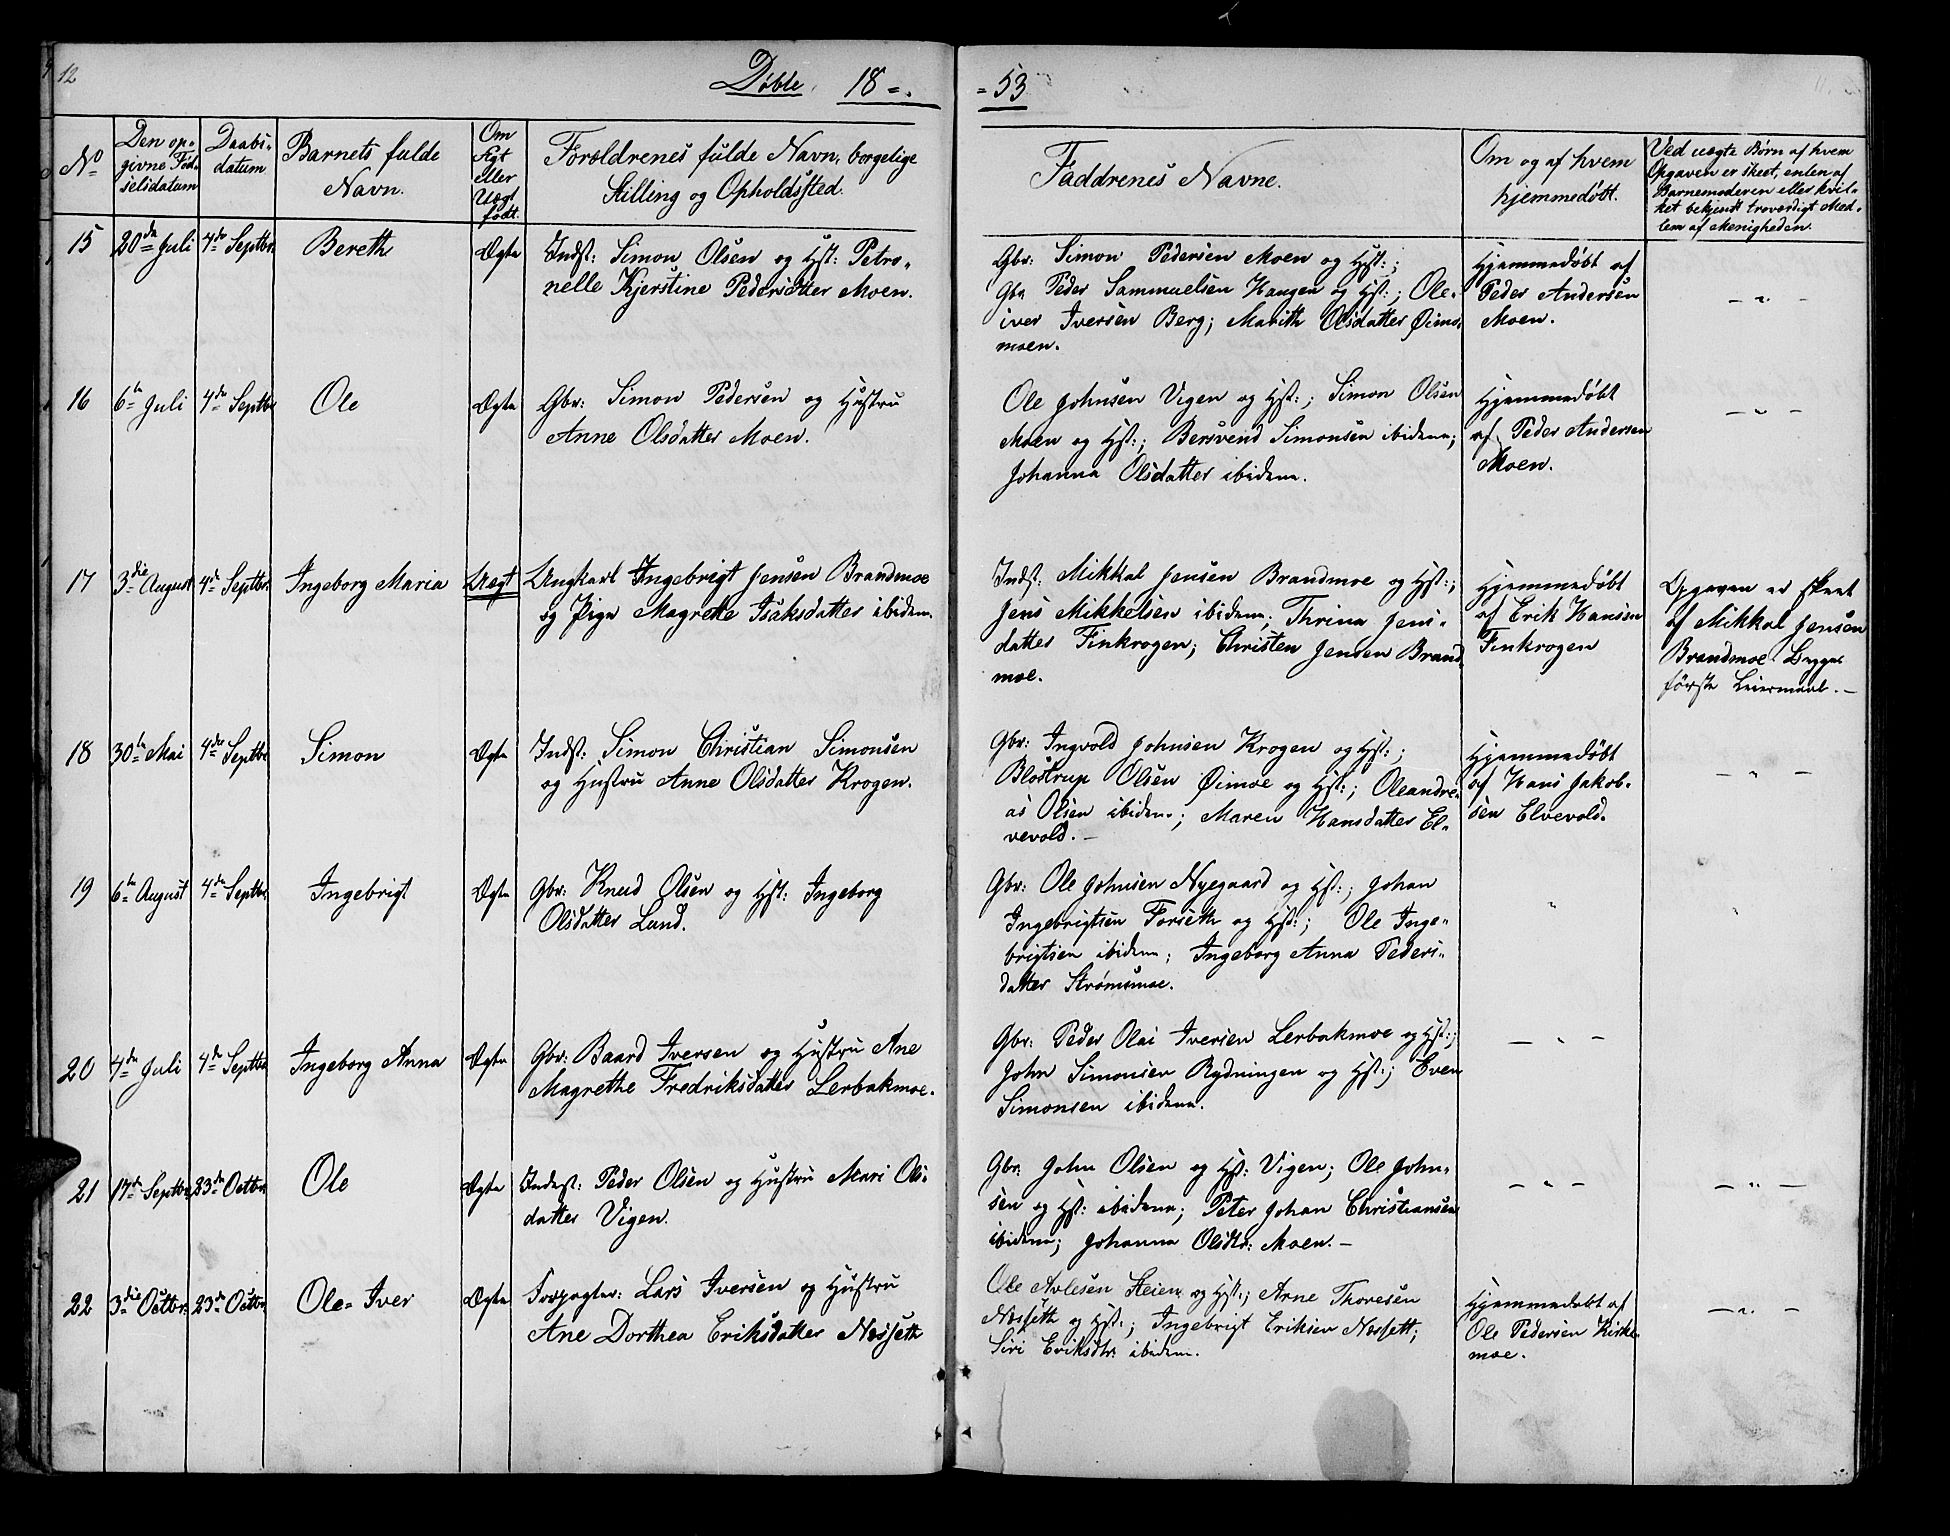 12
Døbte. 18=.
=53
No
Den op-
givne Fød-
selsdatum
Daabs-
datum
Barnets fulde
Navn.
Om
Ægt
eller
Uægt
født.
Forældrenes fulde Navn, borgelige
Stilling og Opholdssted.
Faddrenes Navne.
Om og af hvem
hjemmedøbt.
Ved uægte Børn af hvem
Opgaven er skeet, enten af
Barnemoderen eller hvil-
ket bekjendt troværdigt Med-
lem af Menigheden.
15
20de Juli
4de Septbr.
Bereth
Ægte
Indst: Simon Olsen og Hst: Petro-
nelle Kjerstine Pedersdatter Moen.
Gbr: Simon Pedersen Moen og Hst:;
Gbr Peder Sammuelsen Haugen og Hst:; Ole-
iver Iversen Berg; Marith Olsdatter Øims-
moen.
Hjemmedøbt af
Peder Andersen
Moen.
— " —
16
6te Juli
4de Septbr
Ole
Ægte
Gbr: Simon Pedersen og Hustru
Anne Olsdatter Moen.
Ole Johnsen Vigen og Hst:; Simon Olsen
Moen og Hst:; Bersvend Simonsen ibidem;
Johanna Olsdatter ibidem.
Hjemmedøbt
af Peder Andersen
Moen.
— " —
17
3die August
4de Septbr.
Ingeborg Maria
Uægt
Ungkarl Ingebrigt Jensen Brandmoe
og Pige Magrethe Isaksdatter ibidem.
Indst: Mikkal Jensen Brandmoe og Hst:;
Jens Mikkelsen ibidem; Thrina Jens-
datter Finkrogen; Christen Jensen Brand-
moe.
Hjemmedøbt
af Erik Hansen
Finkrogen
Opgaven er skeet
af Mikkal Jensen
Brandmoe. Begges
første Leiermaal. —
18
30te Mai
4de Septbr
Simon
Ægte
Indst: Simon Christian Simonsen
og Hustru Anne Olsdatter Krogen.
Gbr: Ingvold Johnsen Krogen og Hst:;
Blostrup Olsen Øimoe og Hst:; Oleandre-
as Olsen ibidem; Maren Hansdatter El-
vevold. —
Hjemmedøbt
af Hans Jakob-
sen Elvevold.
— " —
19
6te August
4de Septbr.
Ingebrigt
Ægte
Gbr: Knud Olsen og Hst: Ingeborg
Olsdatter Lund.
Gbr: Ole Johnsen Nyegaard og Hst:; Johan
Ingebrigtsen Forseth og Hst:; Ole Inge-
brigtsen ibidem; Ingeborg Anna Peders-
datter Strømsmoe.
"
"
20
4de Juli
4de Septbr
Ingeborg Anna
Ægte
Gbr: Baard Iversen og Hustru Ane
Magrethe Fredriksdatter Lerbakmoe.
Gbr: Peder Olai Iversen Lerbakmoe og Hst:;
John Simonsen Rydningen og Hst:; Even
Simonsen ibidem.
— " —
21
17de Septbr.
23de Octbr.
Ole
Ægte
Inderst: Peder Olsen og Hustru Mari Ols-
datter Vigen.
Gbr: John Olsen og Hst: Vigen; Ole John-
sen og Hst: ibidem; Peter Johan Christiansen
ibidem; Johanna Olsdtr: Moen. —
— " —
— " —
22
3die Octbr.
23de Octbr.
Ole-Iver
Ægte
Forpagter: Lars Iversen og Hustru
Ane Dorthea Eriksdatter Næsseth
Ole Avlesen Steien og Hst:; Arne Thoresen
Næsseth og Hst:; Ingebrigt Eriksen Næssett;
Siri Eriksdtr: ibidem.
Hjemmedøbt af
Ole Pedersen Kirke-
moe.
— " —